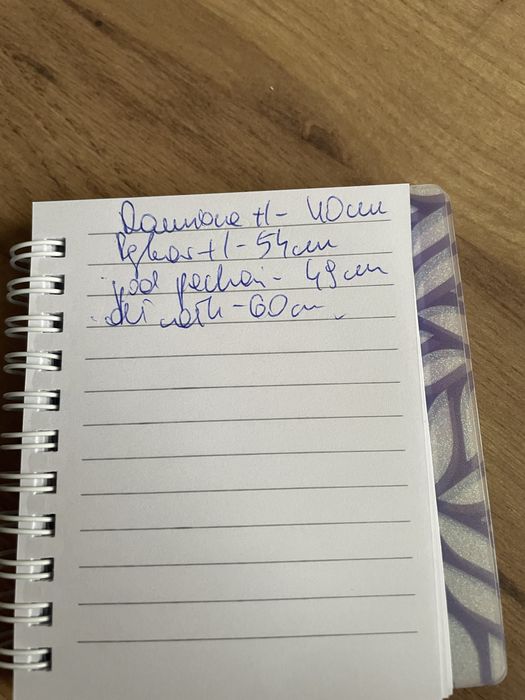 Ramiona +/- 40cm
Rękaw +/- 54cm
pod pachami - 49cm
dł - 60cm